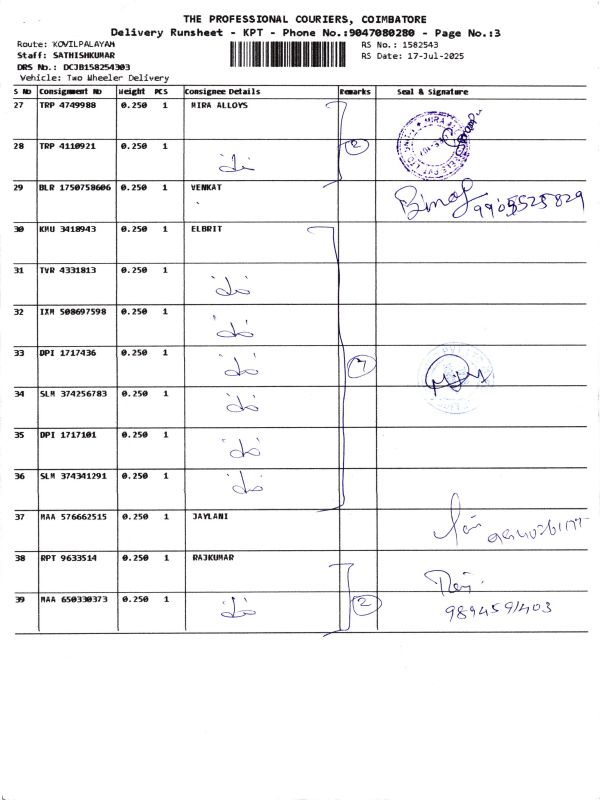 THE PROFESSIONAL COURIERS, COIMBATORE
Delivery Runsheet - KPT - Phone No.:9047080280 - Page No.:3
Route: KOVILPALAYAM
RS No.: 1582543
Staff: SATHISHKUMAR
RS Date: 17-Jul-2025
DRS No.: DCJB158254303
Vehicle: Two Wheeler Delivery
S No Consignment No Weight PCS Consignee Details Remarks Seal & Signature
27 TRP 4749988 0.250 1 MIRA ALLOYS
28 TRP 4110921 0.250 1 2
29 BLR 1750758606 0.250 1 VENKAT
30 KMU 3418943 0.250 1 ELBRIT
31 TVR 4331813 0.250 1
32 IXM 508697598 0.250 1
33 DPI 1717436 0.250 1 7
34 SLM 374256783 0.250 1
35 DPI 1717101 0.250 1
36 SLM 374341291 0.250 1
37 MAA 576662515 0.250 1 JAYLANI
38 RPT 9633514 0.250 1 RAJKUMAR
39 MAA 650330373 0.250 1 2
9894591403